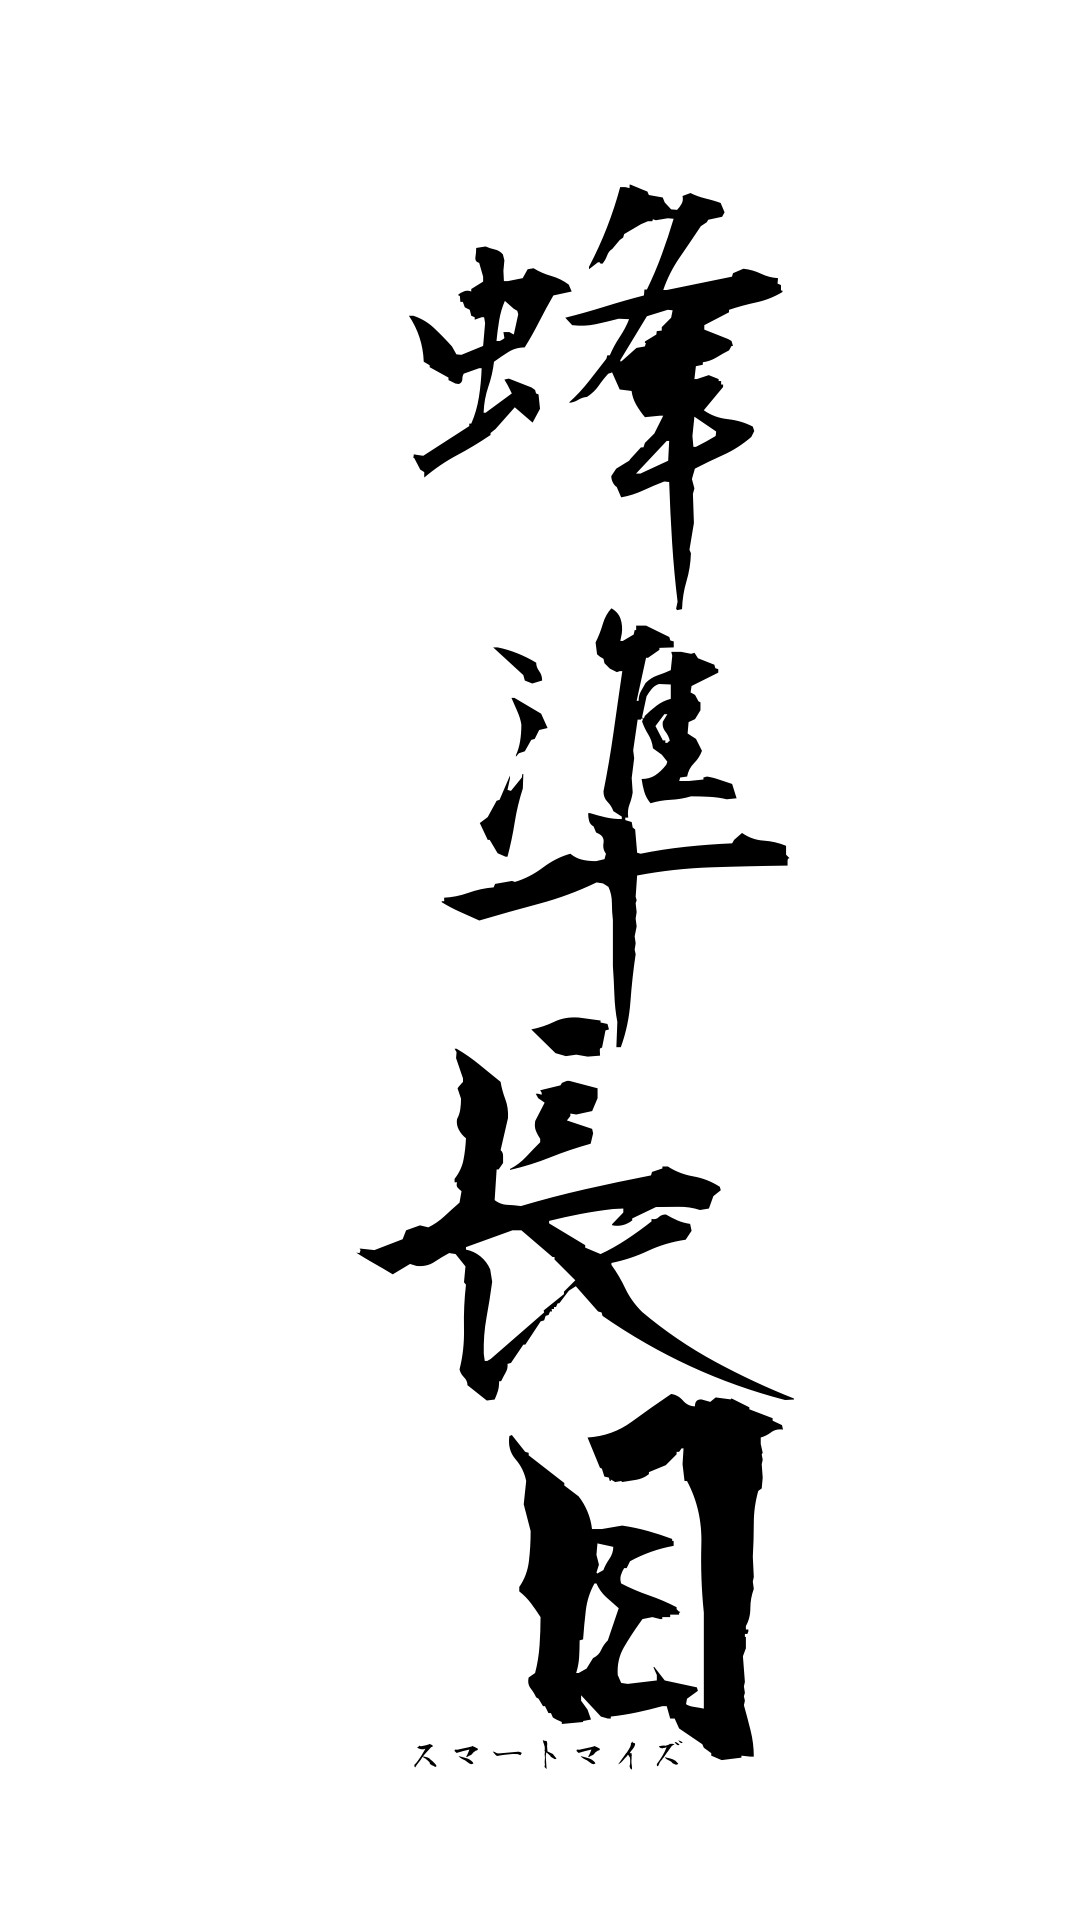 蜂準長目
スマートマイズ